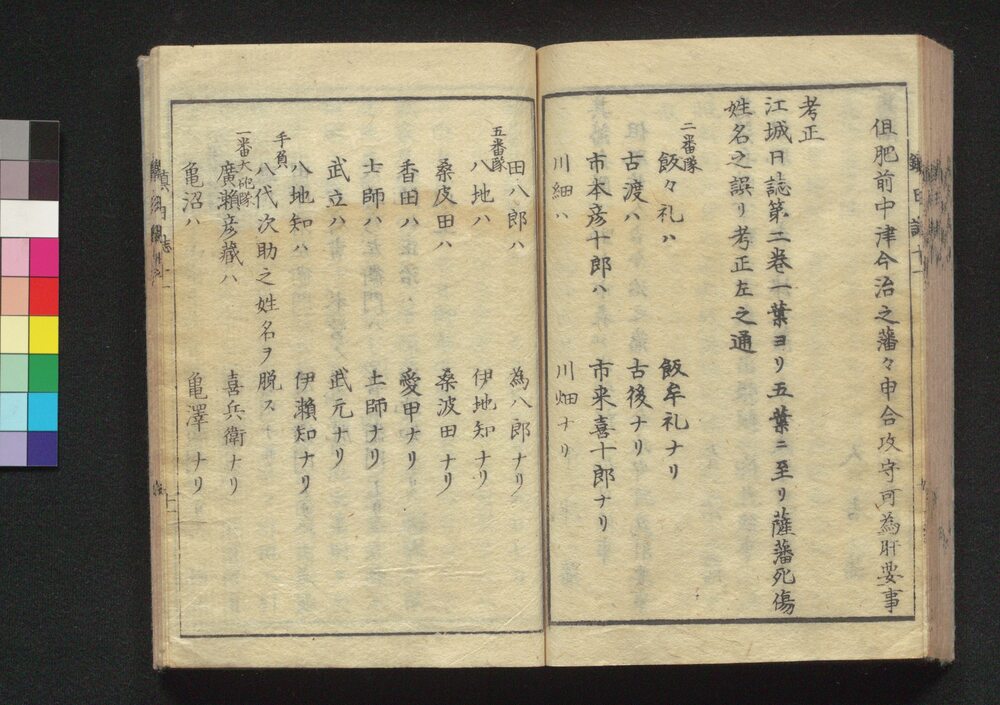 但肥前中津今治之藩々申合攻守可為肝要事
考正
江城日誌第二巻一葉ヨリ五葉ニ至リ薩藩死傷
姓名之誤リ考正左之通
二番隊
飯々礼ハ 飯牟礼ナリ
古渡ハ 古後ナリ
市本彦十郎ハ 市来喜十郎ナリ
川細ハ 川畑ナリ
田八郎ハ 為八郎ナリ
五番隊
八地ハ 伊地知ナリ
桑皮田ハ 桑波田ナリ
香田ハ 愛甲ナリ
士師ハ 土師ナリ
武立ハ 武元ナリ
八地知ハ 伊瀬知ナリ
手負
八代次助之姓名ヲ脱ス
一番大砲隊
廣瀬彦藏ハ 喜兵衛ナリ
亀沼ハ 亀澤ナリ